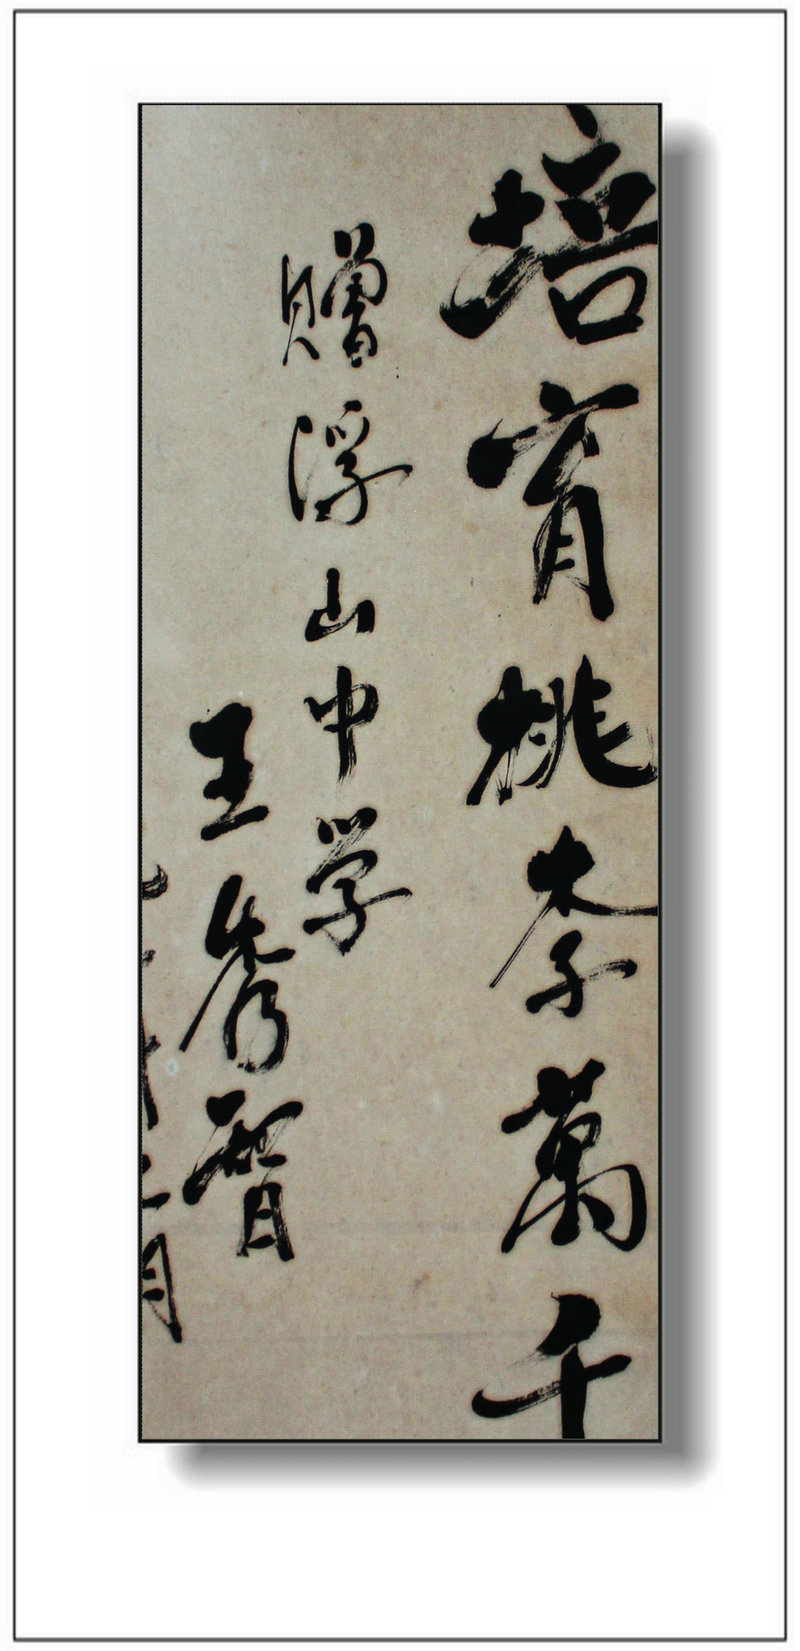 培育桃李萬千
贈浮山中学
王秀智
月